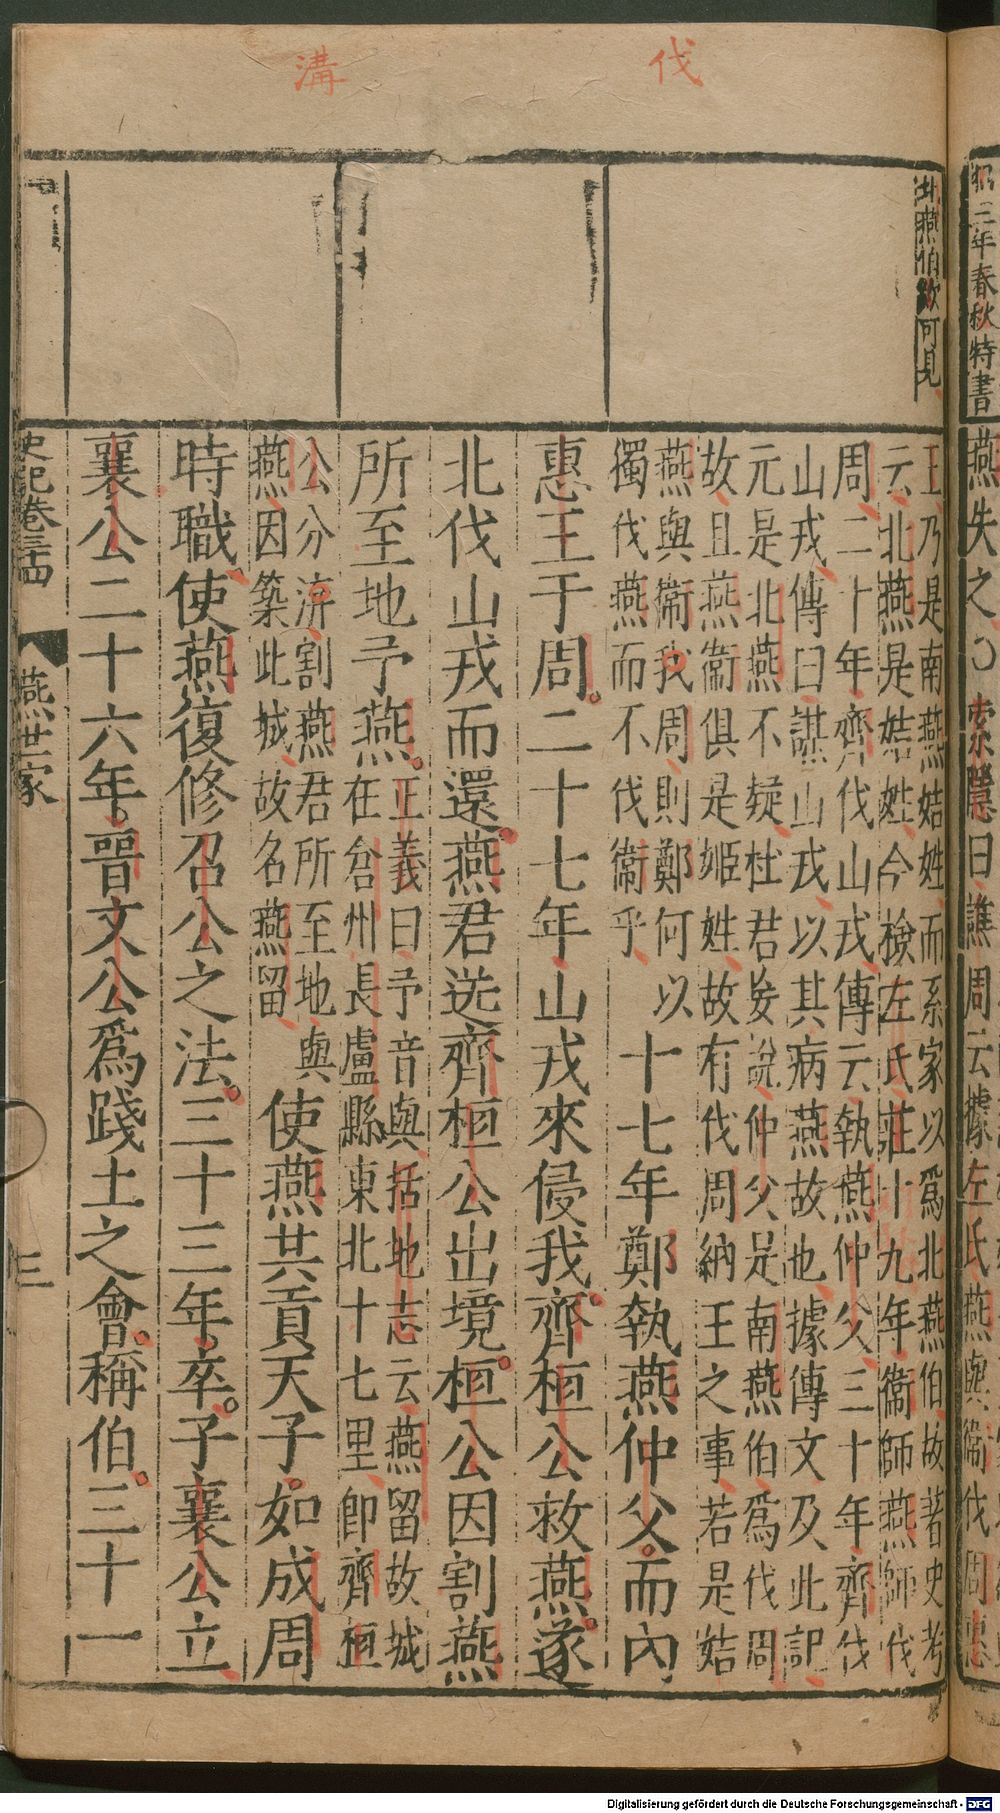 伐
溝
昭三年春秋特書
北燕伯欵可見
燕失之〇索隱曰譙周云據左氏燕與衞伐周惠
王乃是南燕姞姓而系家以爲北燕伯故著史考
云北燕是姞姓今檢左氏莊十九年衞師燕師伐
周二十年齊伐山戎傳云執燕仲父三十年齊伐
山戎傳曰謀山戎以其病燕故也據傳文及此記
元是北燕不疑杜君妄說仲父是南燕伯爲伐周
故且燕衞俱是姬姓故有伐周納王之事若是姞
燕與衞我周則鄭何以
獨伐燕而不伐衞乎
十七年鄭執燕仲父而內
惠王于周二十七年山戎來侵我齊桓公救燕遂
北伐山戎而還燕君送齊桓公出境桓公因割燕
所至地予燕
正義曰予音與括地志云燕留故城
在倉州長盧縣東北十七里卽齊桓
公分溝割燕君所至地與
燕因築此城故名燕留
使燕共貢天子如成周
時職使燕復修召公之法三十三年卒子襄公立
襄公二十六年晉文公爲踐土之會稱伯三十一
史記卷三十四 燕世家 三
Digitalisierung gefördert durch die Deutsche Forschungsgemeinschaft - DFG